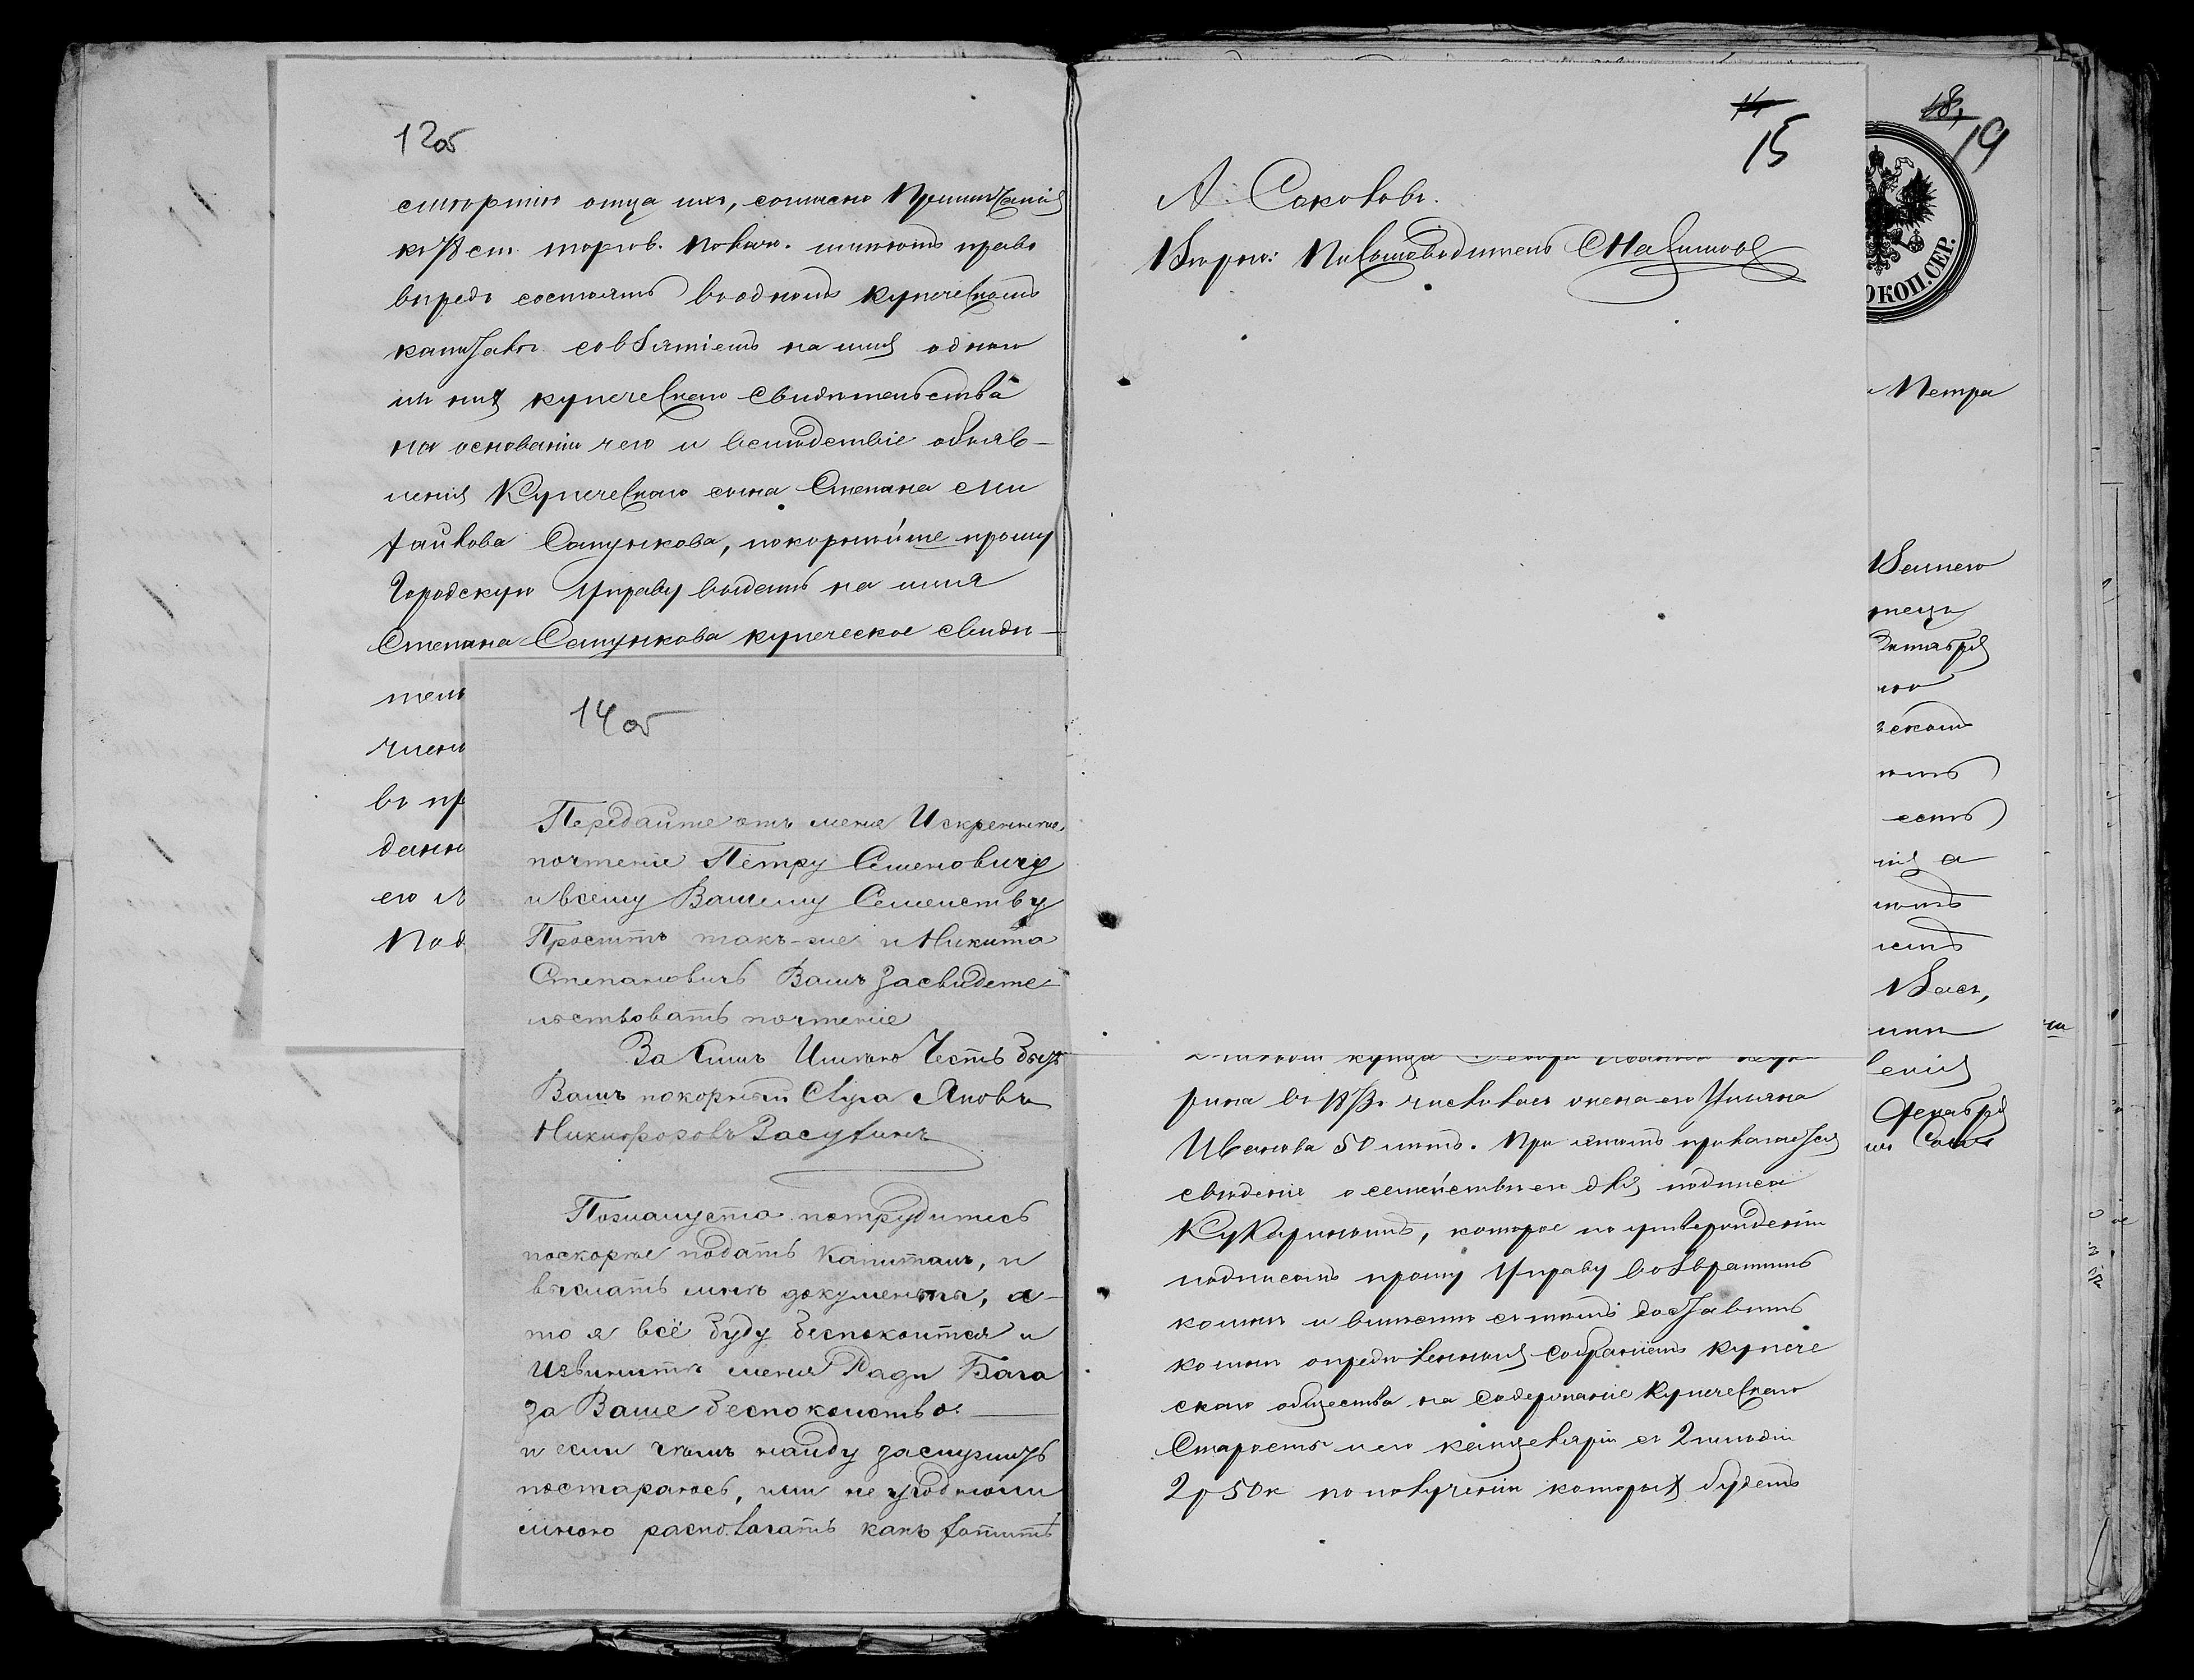 12об
смертию отца ихъ, согласно Примѣчанія
къ 78 ст. торгов. полож. имѣютъ право
впредь состоять въ одномъ купеческомъ
капиталѣ со взятіемъ на имя одного
изъ нихъ купеческаго свидѣтельства
на основаніи чего и вслѣдствіе объяв-
ленія Купеческаго сына Степана Ми
хайлова Сапункова, покорнѣйше прошу
Городскую Управу выдать на имя
Степана Сапункова купеческое свидѣ-
тель
член
въ пр
данн
его
Под
14об
Передайте отъ меня Искреннѣе
почтеніе Пётру Семеновичу
и всему Вашему Семейству
Проситъ такъ-же и Никита
Степановичъ Вамъ засвидете-
льствовать почтеніе
За Симъ Имѣю Честь быть
Вашъ покорный Слуга Яковъ
Никифоровъ Засухинъ
Пожалуста потрудитесь
поскорѣе подать Капиталъ, и
выслать мнѣ документы, а-
то я всё буду беспокоится и
Извинить меня Ради Бога
за Ваше беспокойство.
и если чѣмъ найду заслужить
постараюсь, или не угодноли
мною располагать какъ хотить
14
15
А. Соколовъ.
Вѣрно: Письмоводитель
рина въ 1873г. числилась жена его Ульяна
Иванова 50 лѣтъ. При этомъ прилагается
свѣденіе о семействѣ его для подписа
Кукаринымъ, которое по утвержденіи
подписомъ прошу Управу возвратить
ко мнѣ и вмѣстѣ съ тѣмъ доставить
ко мнѣ опредѣленныя собраніемъ купече
скаго общества на содержаніе Купеческаго
Старосты и его канцеляріи съ 2 гильдіи
2р 50к по полученіи которыхъ будетъ
18,
19
КОП. СЕР.
Петра
Октября
еніи
Декабря